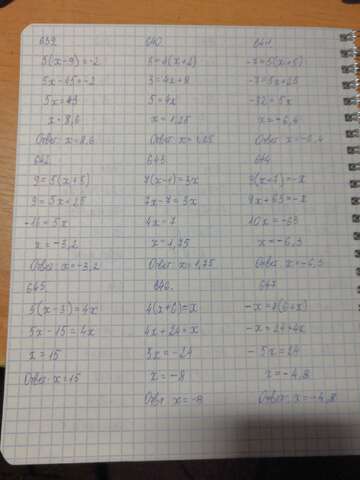 639
5(x-9)=-2
5x-45=-2
5x=43
x=8,6
Ответ: x=8,6
640
3=4(x+2)
3=4x+8
5=4x
x=1,25
Ответ: x=1,25
641
-7=5(x+5)
-7=5x+25
-32=5x
x=-6,4
Ответ: x=-6,4
642
9=5(x+5)
9=5x+25
-16=5x
x=-3,2
Ответ: x=-3,2
643
7(x-1)=3x
7x-7=3x
4x=7
x=1,75
Ответ: x=1,75
644
9(x+7)=-x
9x+63=-x
10x=-63
x=-6,3
Ответ: x=-6,3
645
5(x-3)=4x
5x-15=4x
x=15
Ответ: x=15
646
4(x+6)=x
4x+24=x
3x=-24
x=-8
Ответ: x=-8
647
-x=4(6+x)
-x=24+4x
-5x=24
x=-4,8
Ответ: x=-4,8